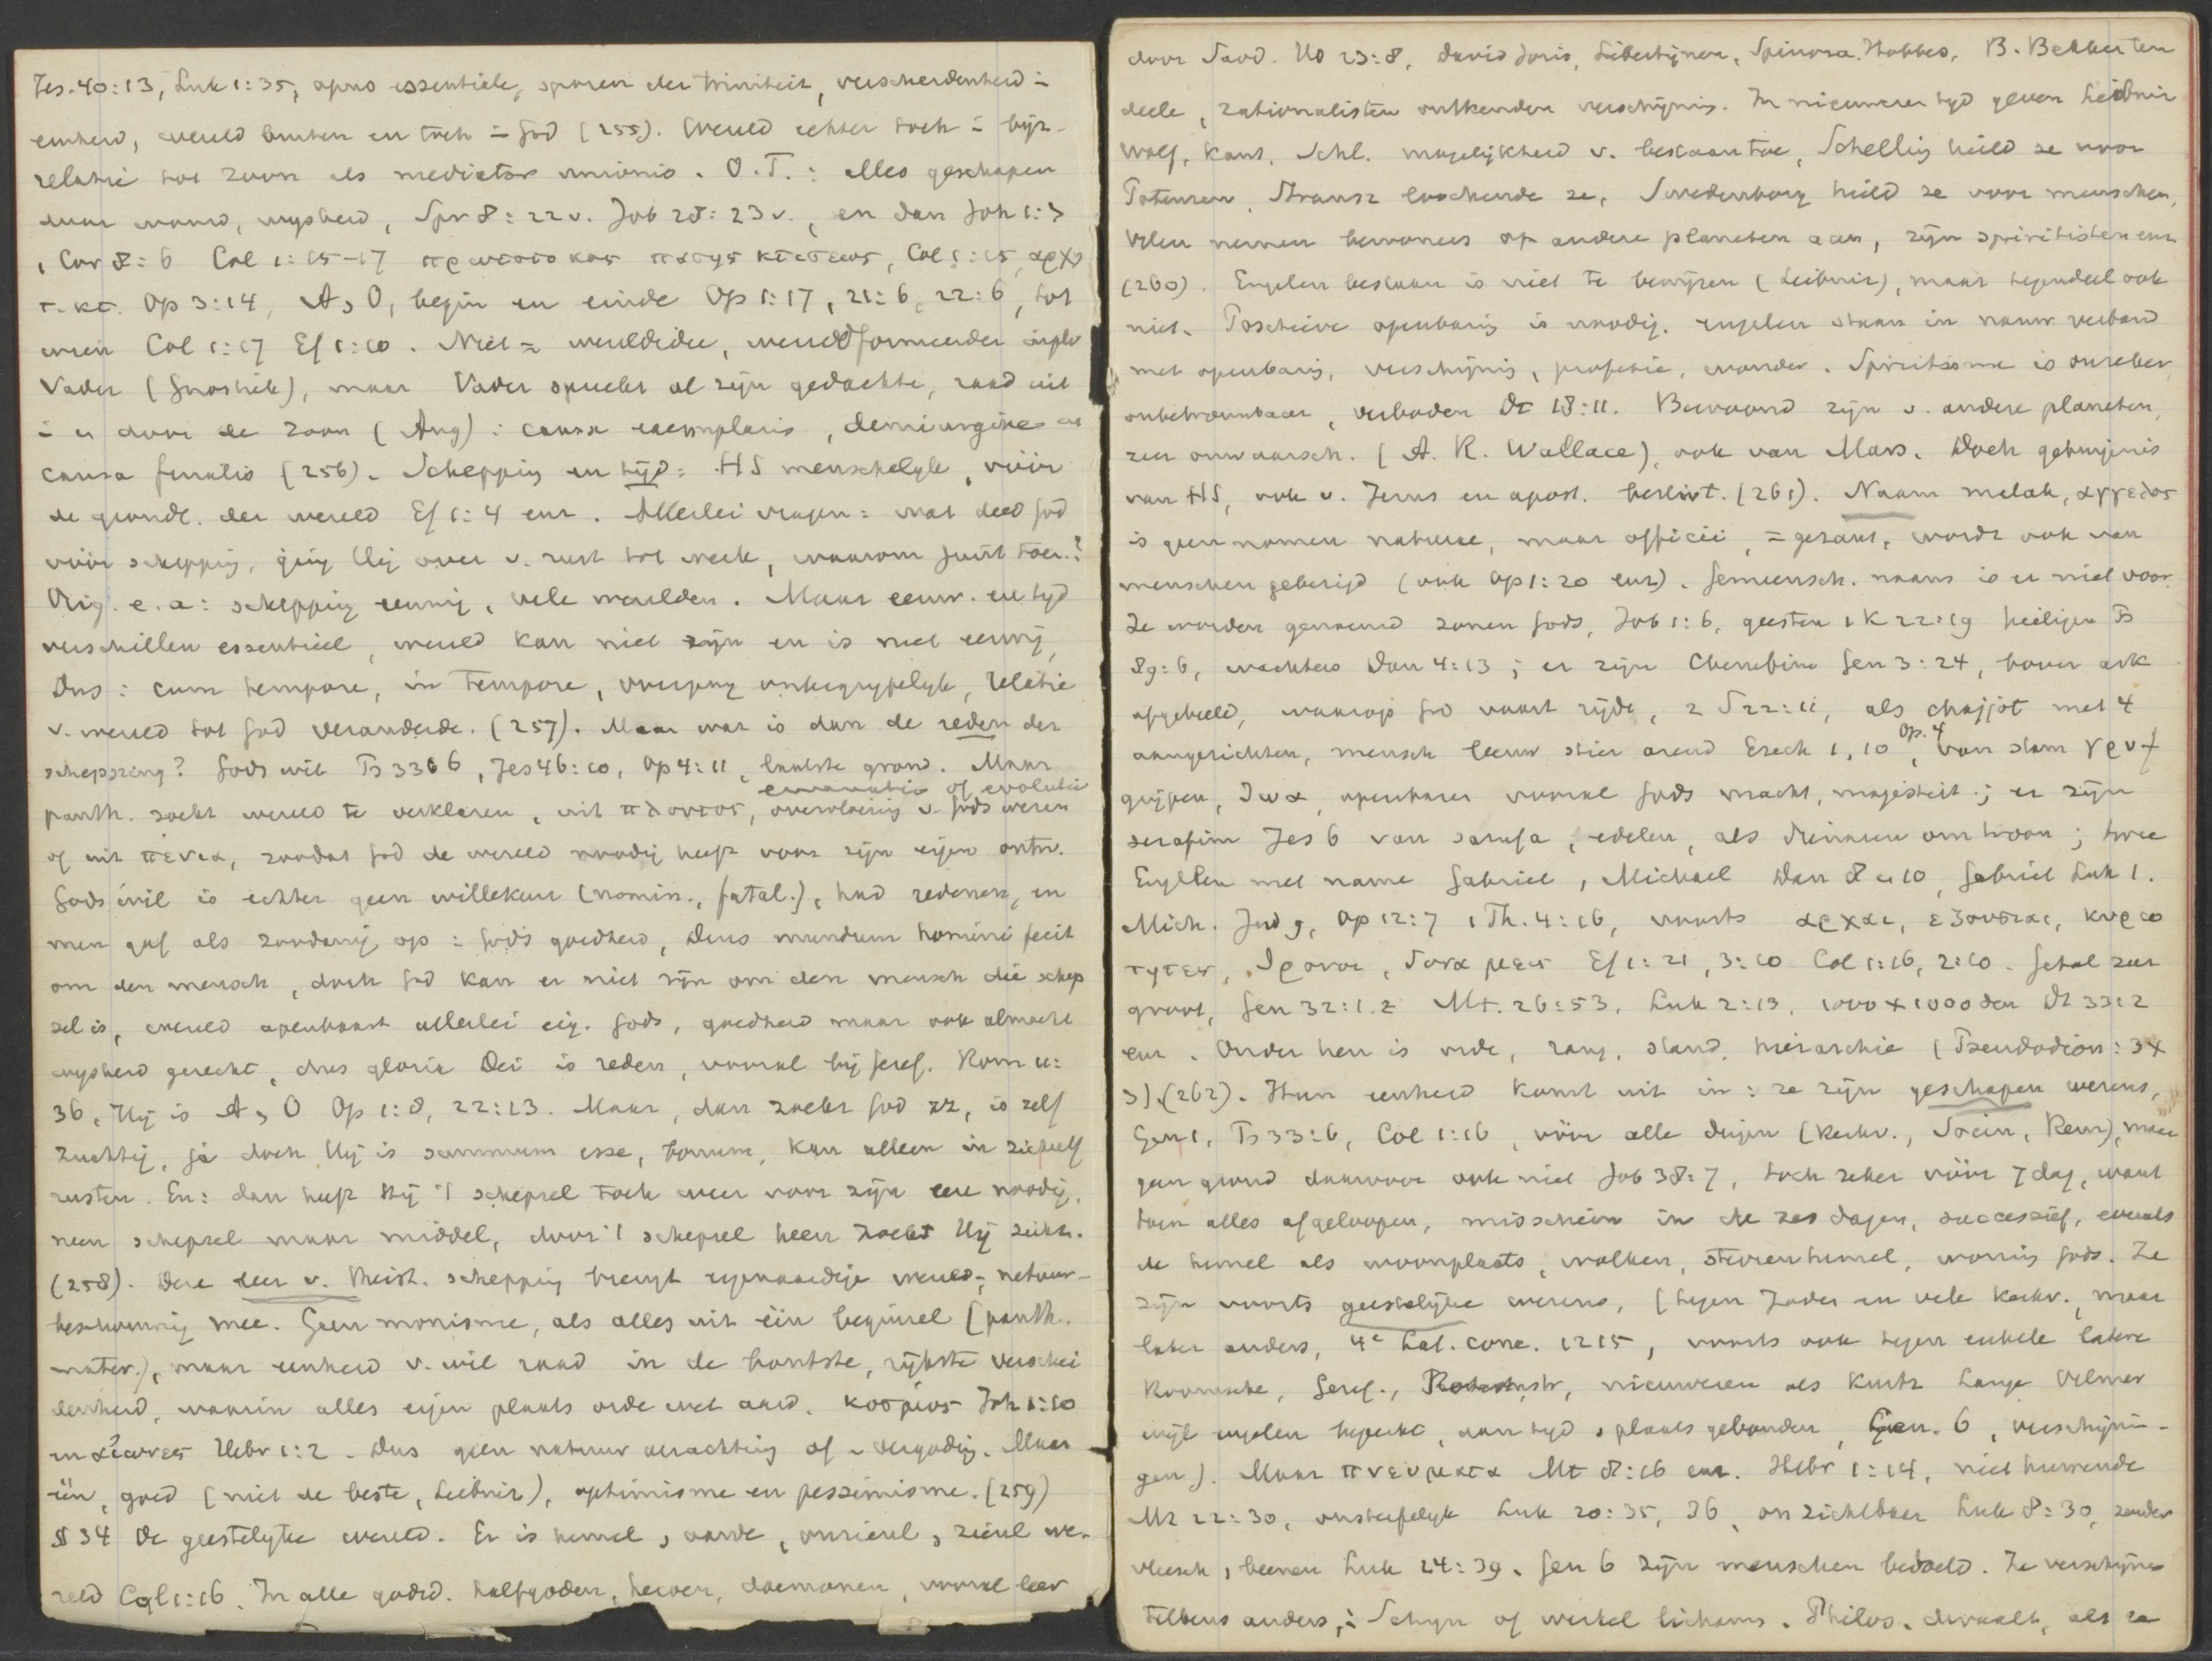 Jes. 40:13, Luk 1:35, opus essentiale, sporen der triniteit, verscheidenheid ÷
eenheid, wereld buiten en toch ÷ God (255). Wereld echter toch ÷ bijz.
relatie tot Zoon als mediator unionis. O.T.: alles geschapen
door woord, wysheid, Spr 8:22 v. Job 28:23 v., en dan Joh 1:3
1 Cor 8:6 Col 1:15-17 πρωτοτοκος πασης κτισεως, Col 1:15, αρχη
τ. κτ. Op 3:14, A, O, begin en einde Op 1:17, 21:6, 22:6, tot
wien Col 1:17 Ef 1:10. Niet = wereldidee, wereldformeerder
Vader (Gnostiek), maar Vader spreekt al zijn gedachte, raad uit
÷ er door de Zoon (Aug): causa exemplaris, demiurgike en
causa finalis (256). Schepping en tijd: HS menschelyk, vóór
de grondl. der wereld Ef 1:4 enz. Allerlei vragen: wat deed God
vóór schepping, ging Hij over v. rust tot werk, waarom juist toen?
Orig. e.a: schepping eeuwig, vele werelden. Maar eeuw. en tyd
verschillen essentieel, wereld kan niet zijn en is niet eeuwig,
Dus: cum tempore, in tempore, overgang onbegrypelyk, relatie
v. wereld tot God veranderde. (257). Maar wat is dan de reden der
schepping? Gods wil Ps 33:6, Jes 46:10, Op 4:11, laatste grond. Maar
emanatie of evolutie
panth. zoekt wereld te verklaren, uit πλουτος, overvloeiing v. Gods wezen
of uit πενια, zoodat God de wereld noodig heeft voor zijn eigen ontw.
Gods wil is echter geen willekeur (nomin., fatal.), had redenen, en
men gaf als zoodanig op: Gods goedheid, Deus mundum homini fecit
om den mensch, doch God kan er niet zijn om den mensch die schep
sel is, wereld openbaart allerlei eig. Gods, goedheid maar ook almacht
wysheid gerecht, dus gloria Dei is reden, vooral bij Geref. Rom 11:
36, Hij is A, O Op 1:8, 22:13. Maar, dan zoekt God zz, is zelf
zuchtig, ja doch Hij is summum esse, bonum, kan alleen in zichzelf
rusten. En: dan heeft Hij 't schepsel toch weer voor zijn eer noodig,
neen schepsel maar middel, door 't schepsel heen zoekt Hij zichz.
(258). Deze leer v. theïst. schepping brengt eigenaardige wereld-, natuur-
beschouwing mee. Geen monisme, als alles uit één beginsel (panth.
mater.), maar eenheid v. wil raad in de bontste, rijkste verschei
denheid, waarin alles eigen plaats orde wet aard. κοσμος Joh 1:10
en αιωνες Hebr 1:2. Dus geen natuur verachting of - vergoding. Maar
één, goed (niet de beste, Leibniz), optimisme en pessimisme. (259)
§ 34 De geestelyke wereld. Er is hemel, aarde, onzienl, zienl we-
reld Col 1:16. In alle godsd. halfgoden, heroen, daemonen, vooral leer
door Sadd. Hd 23:8, David Joris, Libertijnen, Spinoza, Hobbes, B. Bekker ten
deele, rationalisten ontkenden verschijnig. In nieuweren tyd geven Leibniz
Wolf, Kant, Schl. mogelijkheid v. bestaan toe, Schelling hield ze voor
Potenzen, Strausz loochende ze, Swedenborg hield ze voor menschen,
Velen nemen bewoners op andere planeten aan, zijn spiritisten enz
(260). Engelen bestaan is niet te bewijzen (Leibniz), maar tegendeel ook
niet. Positieve openbaring is noodig. engelen staan in nauw verband
met openbaring, verschijnig, profetie, wonder. Spiritisme is onzeker,
onbetrouwbaar, verboden Dt 18:11. Bewoond zijn v. andere planeten,
zeer onwaarsch. (A. R. Wallace), ook van Mars. Doch getuigenis
van HS, ook v. Jezus en apost. beslist. (261). Naam malak, αγγελος
is geen nomen naturae, maar officii, = gezant, wordt ook van
menschen gebezigd (ook Op 1:20 enz). Gemeensch. naam is er niet voor.
Ze worden genoemd zonen Gods, Job 1:6, geesten 1 K 22:19 heiligen Ps
89:6, wachters Dan 4:13; er zijn Cherubim Gen 3:24, boven ark
afgebeeld, waarop God vaart rijdt, 2 S 22:11, als chajjot met 4
aangezichten, mensch leeuw stier arend Ezech 1, 10 Op. 4, van stam γρυπ
grijpen, openbaren vooral Gods macht, majesteit; er zijn
serafim Jes 6 van sarafa, edelen, als dienaren om troon; twee
Engelen met name Gabriel, Michael Dan 8 en 10, Gabriel Luk 1.
Mich. Jud 9, Op 12:7 1 Th. 4:16, voorts αρχαι, εξουσιαι, κυριο
τητες, θρονοι, δυναμεις Ef 1:21, 3:10 Col 1:16, 2:10. Getal zeer
groot, Gen 32:1.2 Mt. 26:53, Luk 2:13, 1000 x 1000 den Dt 33:2
enz. Onder hen is orde, rang, stand, hierarchie (Pseudodion: 3x
3). (262). Hun eenheid komt uit in: ze zijn geschapen wezens,
Gen 1, Ps 33:6, Col 1:16, vóór alle dingen (Kerkv., Socin, Rem), maar
geen grond daarvoor ook niet Job 38:7, toch zeker vóór 7 dag, want
toen alles afgeloopen, misschien in de zes dagen, successief, evenals
de hemel als woonplaats, wolken, sterrenhemel, woning Gods. Ze
zijn voorts geestelijke wezens, (tegen Joden en vele kerkv., maar
later anders, 4e Lat. conc. 1215, voorts ook tegen enkele latere
Roomsche, Geref., nieuweren als Kurtz Lange Vilmar
wijl engelen beperkt, aan tyd, plaats gebonden, Gen. 6, verschijnin-
gen). Maar πνευματα Mt 8:16 enz. Hebr 1:14, niet huwende
Mt 22:30, onsterfelyk Luk 20:35, 36, onzichtbaar Luk 8:30, zonder
vleesch, beenen Luk 24:39. Gen 6 zijn menschen bedoeld. Ze verschijnen
telkens anders, ÷ Schyn of werkel lichaam. Philos. dwaalt, als ze